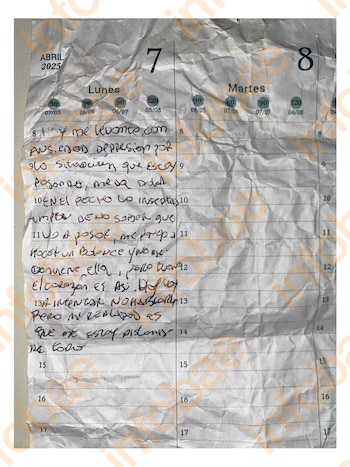 ABRIL
2025
7
8
Lunes
Martes
30 60 90 120
07/05 06/06 06/07 05/08
60 90 120
08/05 07/06 07/07 06/08
8 Hoy me levanto con
ansiedad depresion por
9 la situacion que estoy
pasando, me da dolor
10 en el pecho la incertidumbre
de no saber que
11 va a pasar, me puse a
hacer un balance y no me
conviene ella, pero bueno
el corazon es asi. Hoy voy
13 a intentar no hablarle
pero mi realidad es
que me estoy
de todo
15
16
17
8
9
10
11
12
13
14
15
16
17
8
9
10
11
12
13
14
infobae